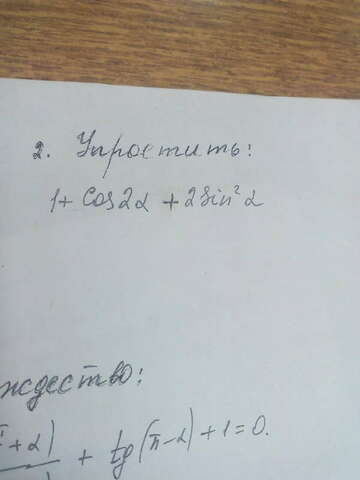 2. Упростить:
1 + cos2α + 2sin²α
ждество:
+ α)
+ tg(π-α) + 1 = 0.